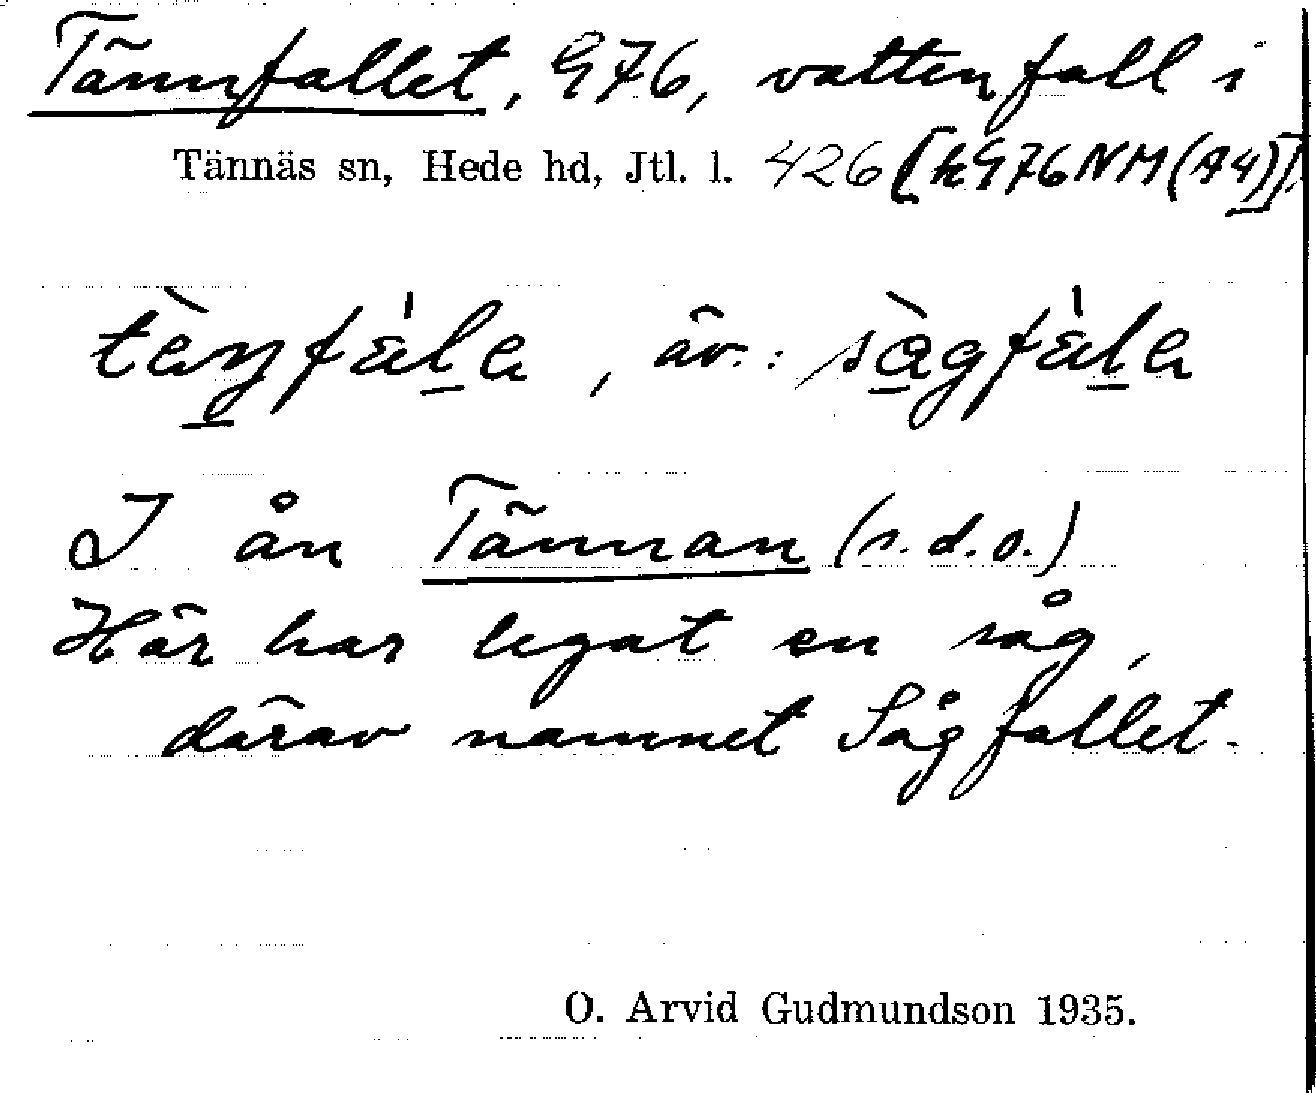 Tännfallet, G76, vattenfall i
Tännäs sn, Hede hd, Jtl. l. 426 [kG76NM(A4)].
, äv.:
I ån Tännan (s.d.o.)
Här har legat en såg,
därav namnet Sågfallet.
O. Arvid Gudmundson 1935.